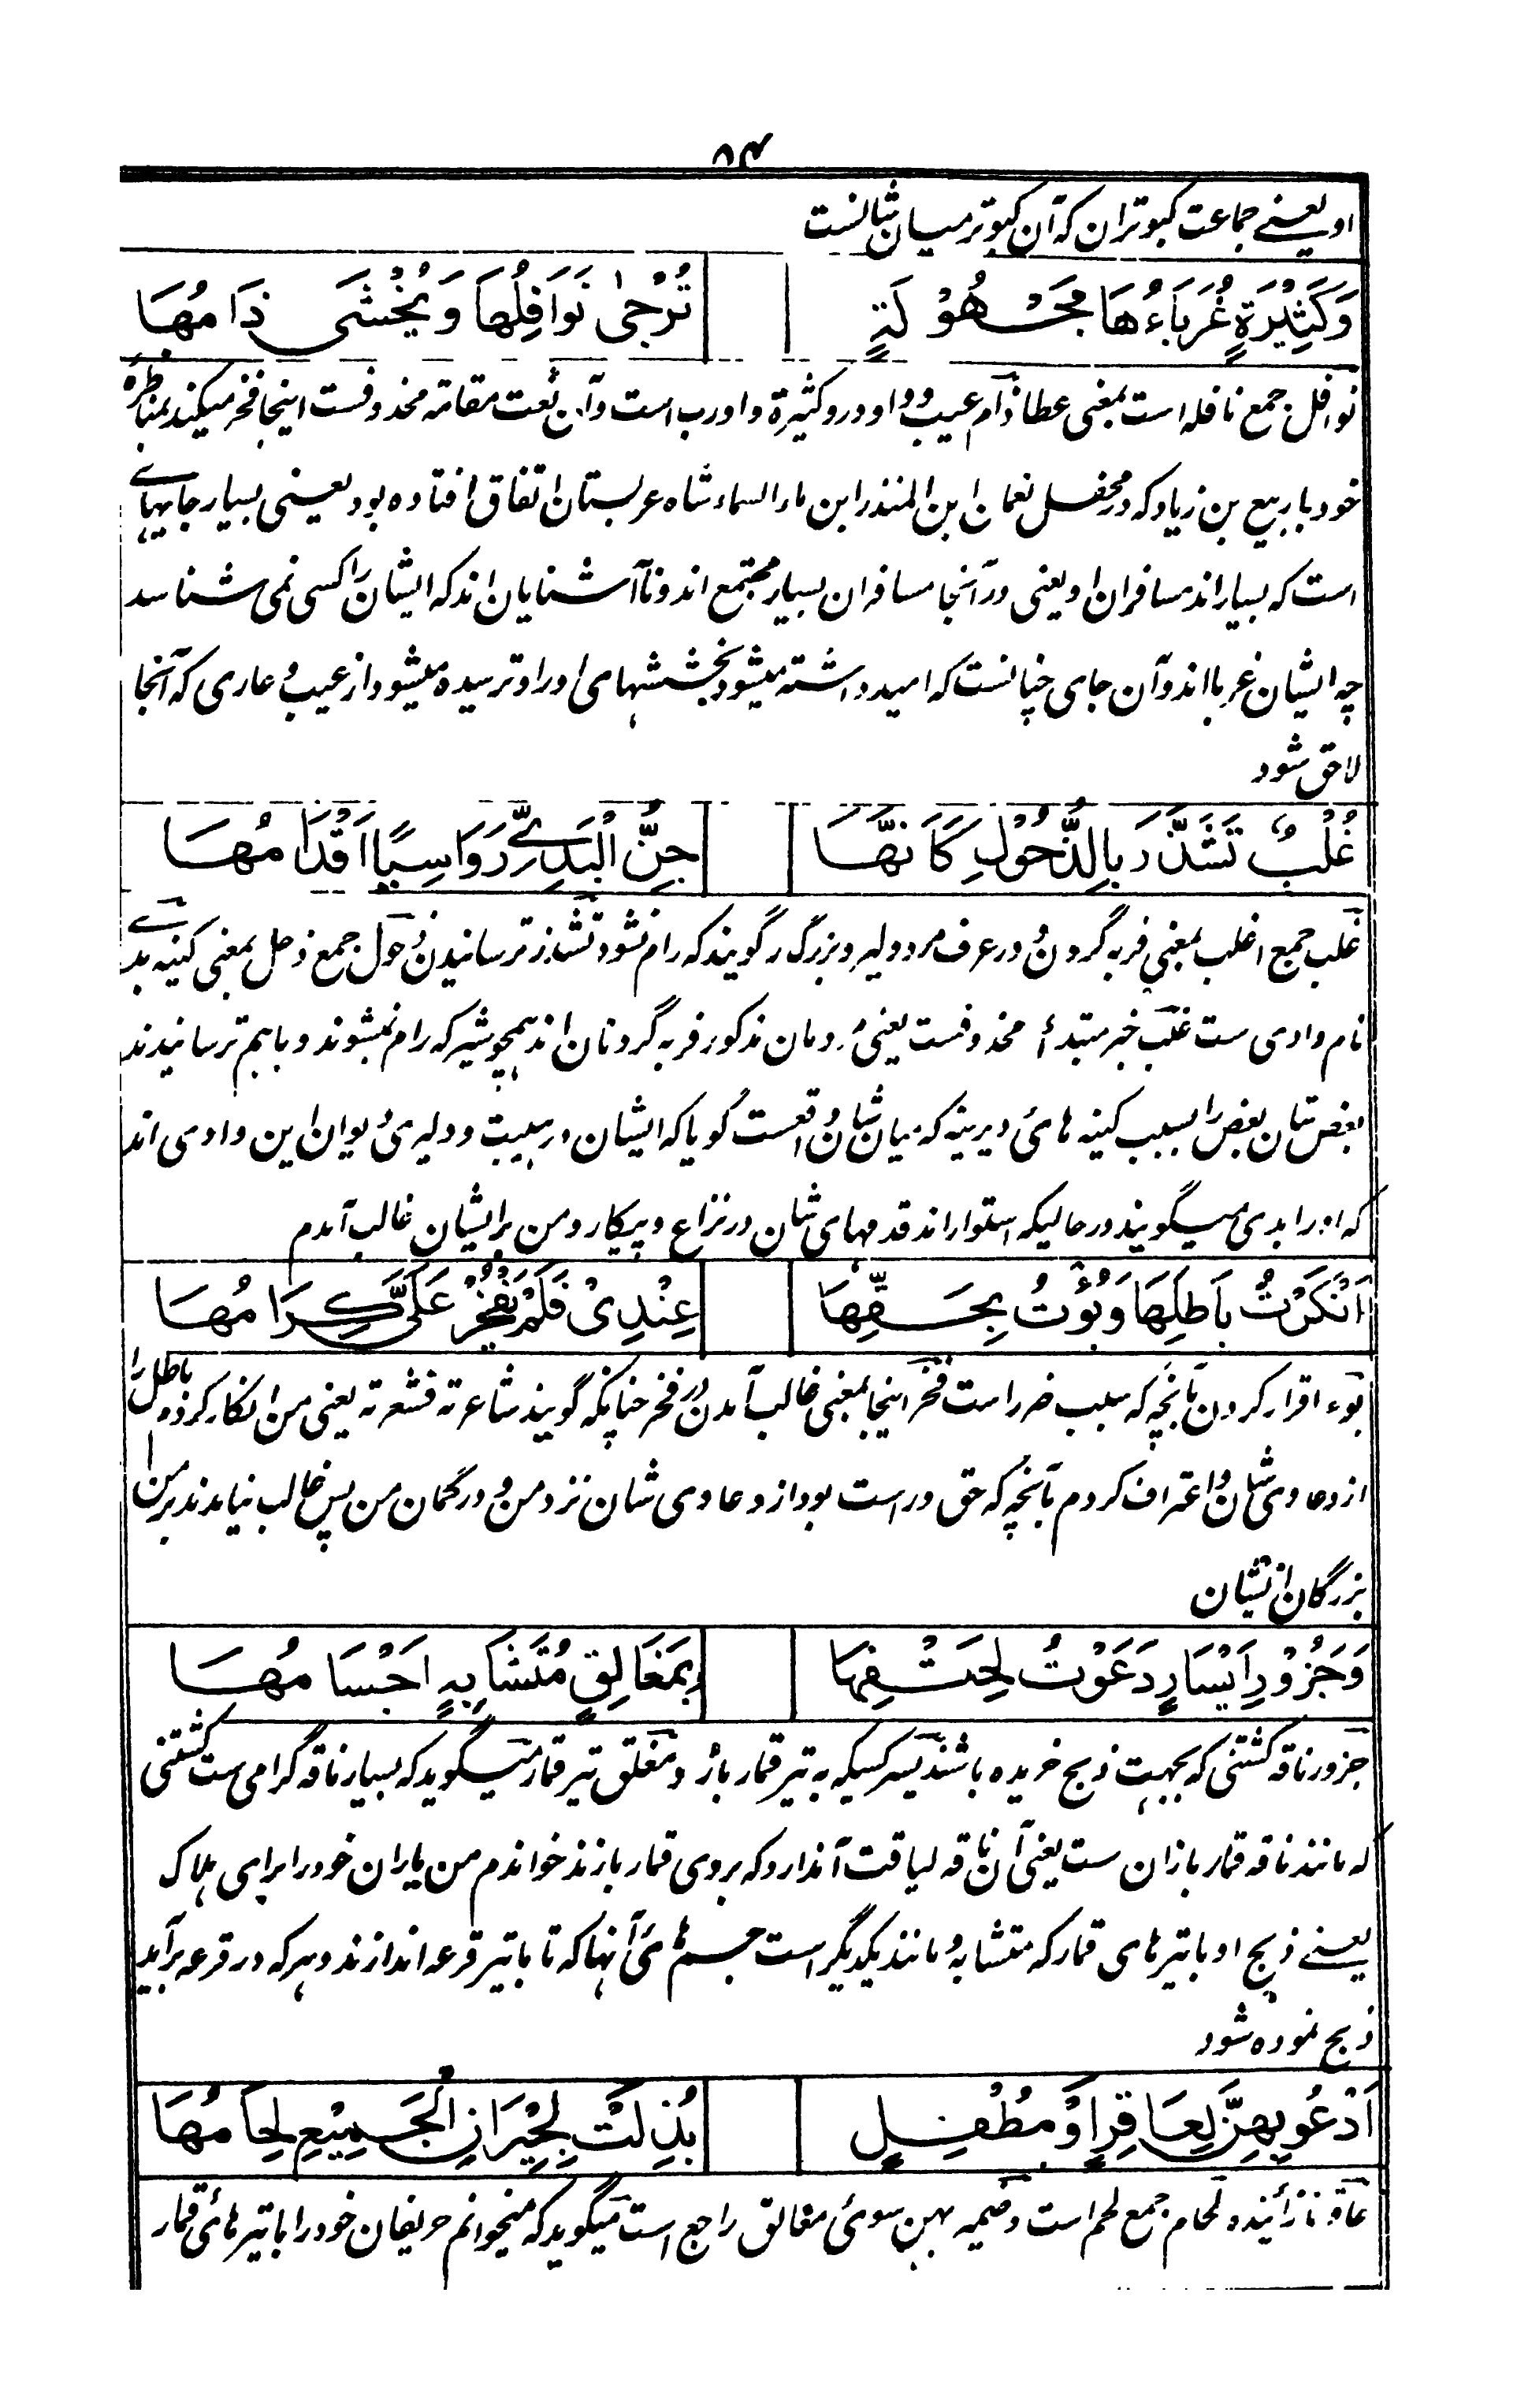 ۸۴
او یعنے جماعت کبوتران که آن کبوتر میان شانست
وَكَثِيْرَةٍ غُرَبَاءُهَا مَجْهُوْلَةٍ تُرْجٰى نَوَافِلُهَا وَيُخْشَى ذَامُهَا
نوافل جمع نافله است بمعنی عطا ذام عیب و واو در و کثیرة واو رب است وآن نعت مقامة محذوفست اینجا فخر میکند بمناظره
خود با ربیع بن زیاد که در محفل نعمان ابن المنذر ابن ماء السماء شاه عربستان اتفاق افتاده بود یعنی بسیار جایهائے
است که بسیار اند مسافران او یعنی در آنجا مسافران بسیار مجتمع اند و ناآشنایان اند که ایشان را کسی نمی شناسد
چه ایشان غربا اند وآن جای چنانست که امید داشته میشود بخششهای او را و ترسیده میشود از عیب و عاری که آنجا
لاحق شود
غُلْبٌ تَشَذَّرَ بِالذُّحُوْلِ كَاَنَّهَا جِنُّ الْبَدِيِّ رَوَاسِيًا اَقْدَامُهَا
غلب جمع اغلب بمعنی فربه گردن و در عرف مرد دلیر و بزرگ را گویند که رام نشود تشذر ترسانیدن ذحول جمع ذحل بمعنی کینه بدے
نام وادی ست غلب خبر مبتدأ محذوفست یعنی مردمان مذکور فربه گردنان اند همچو شیر که رام نمیشوند و باهم ترسانیدند
بعض شان بعض را بسبب کینه های دیرینه که میان شان واقعست گویا که ایشان در هیبت و دلیری دیوان این وادی اند
که او را بدی میگویند در حالیکه استوار اند قدمهای شان در نزاع و پیکار و من بر ایشان غالب آمدم
اَنْكَرْتُ بَاطِلَهَا وَبُؤْتُ بِحَقِّهَا عِنْدِىْ فَلَمْ يَفْخَرْ عَلَىَّ كِرَامُهَا
بوء اقرار کردن بآنچه که سبب ضرر است فخر اینجا بمعنی غالب آمدن در فخر چنانکه گویند شاعرته فشعرته یعنی من انکار کردم باطل را
از دعاوی شان و اعتراف کردم بآنچه که حق و راست بود از دعاوی شان نزد من و در گمان من پس غالب نیامدند بر من
بزرگان از یشان
وَجَزُوْرِ اَيْسَارٍ دَعَوْتُ لِحَتْفِهَا بِمَغَالِقٍ مُتَشَابِهٍ اَجْسَامُهَا
جزور ناقه کشتنی که بجهت ذبح خریده باشند یسر کسیکه به تیر قمار بازد و مغلق تیر قمار میگوید که بسیار ناقه گرامی ست کشتنی
که مانند ناقه قمار بازان ست یعنی آن ناقه لیاقت آن دارد که بروی قمار بازند خواندم من یاران خود را برای هلاک
یعنے ذبح او با تیرهای قمار که متشابه و مانند یکدیگر است جسم های آنها که تا با تیر قرعه اندازند و هر که در قرعه برآید
ذبح نموده شود
اَدْعُوْ بِهِنَّ لِعَاقِرٍ اَوْ مُطْفِلٍ بُذِلَتْ لِجِيْرَانِ الْجَمِيْعِ لِحَامُهَا
عاقر نازائنده لحام جمع لحم است و ضمیر بهن سوئی مغالق راجع است میگوید که میخوانم حریفان خود را با تیر هائی قمار